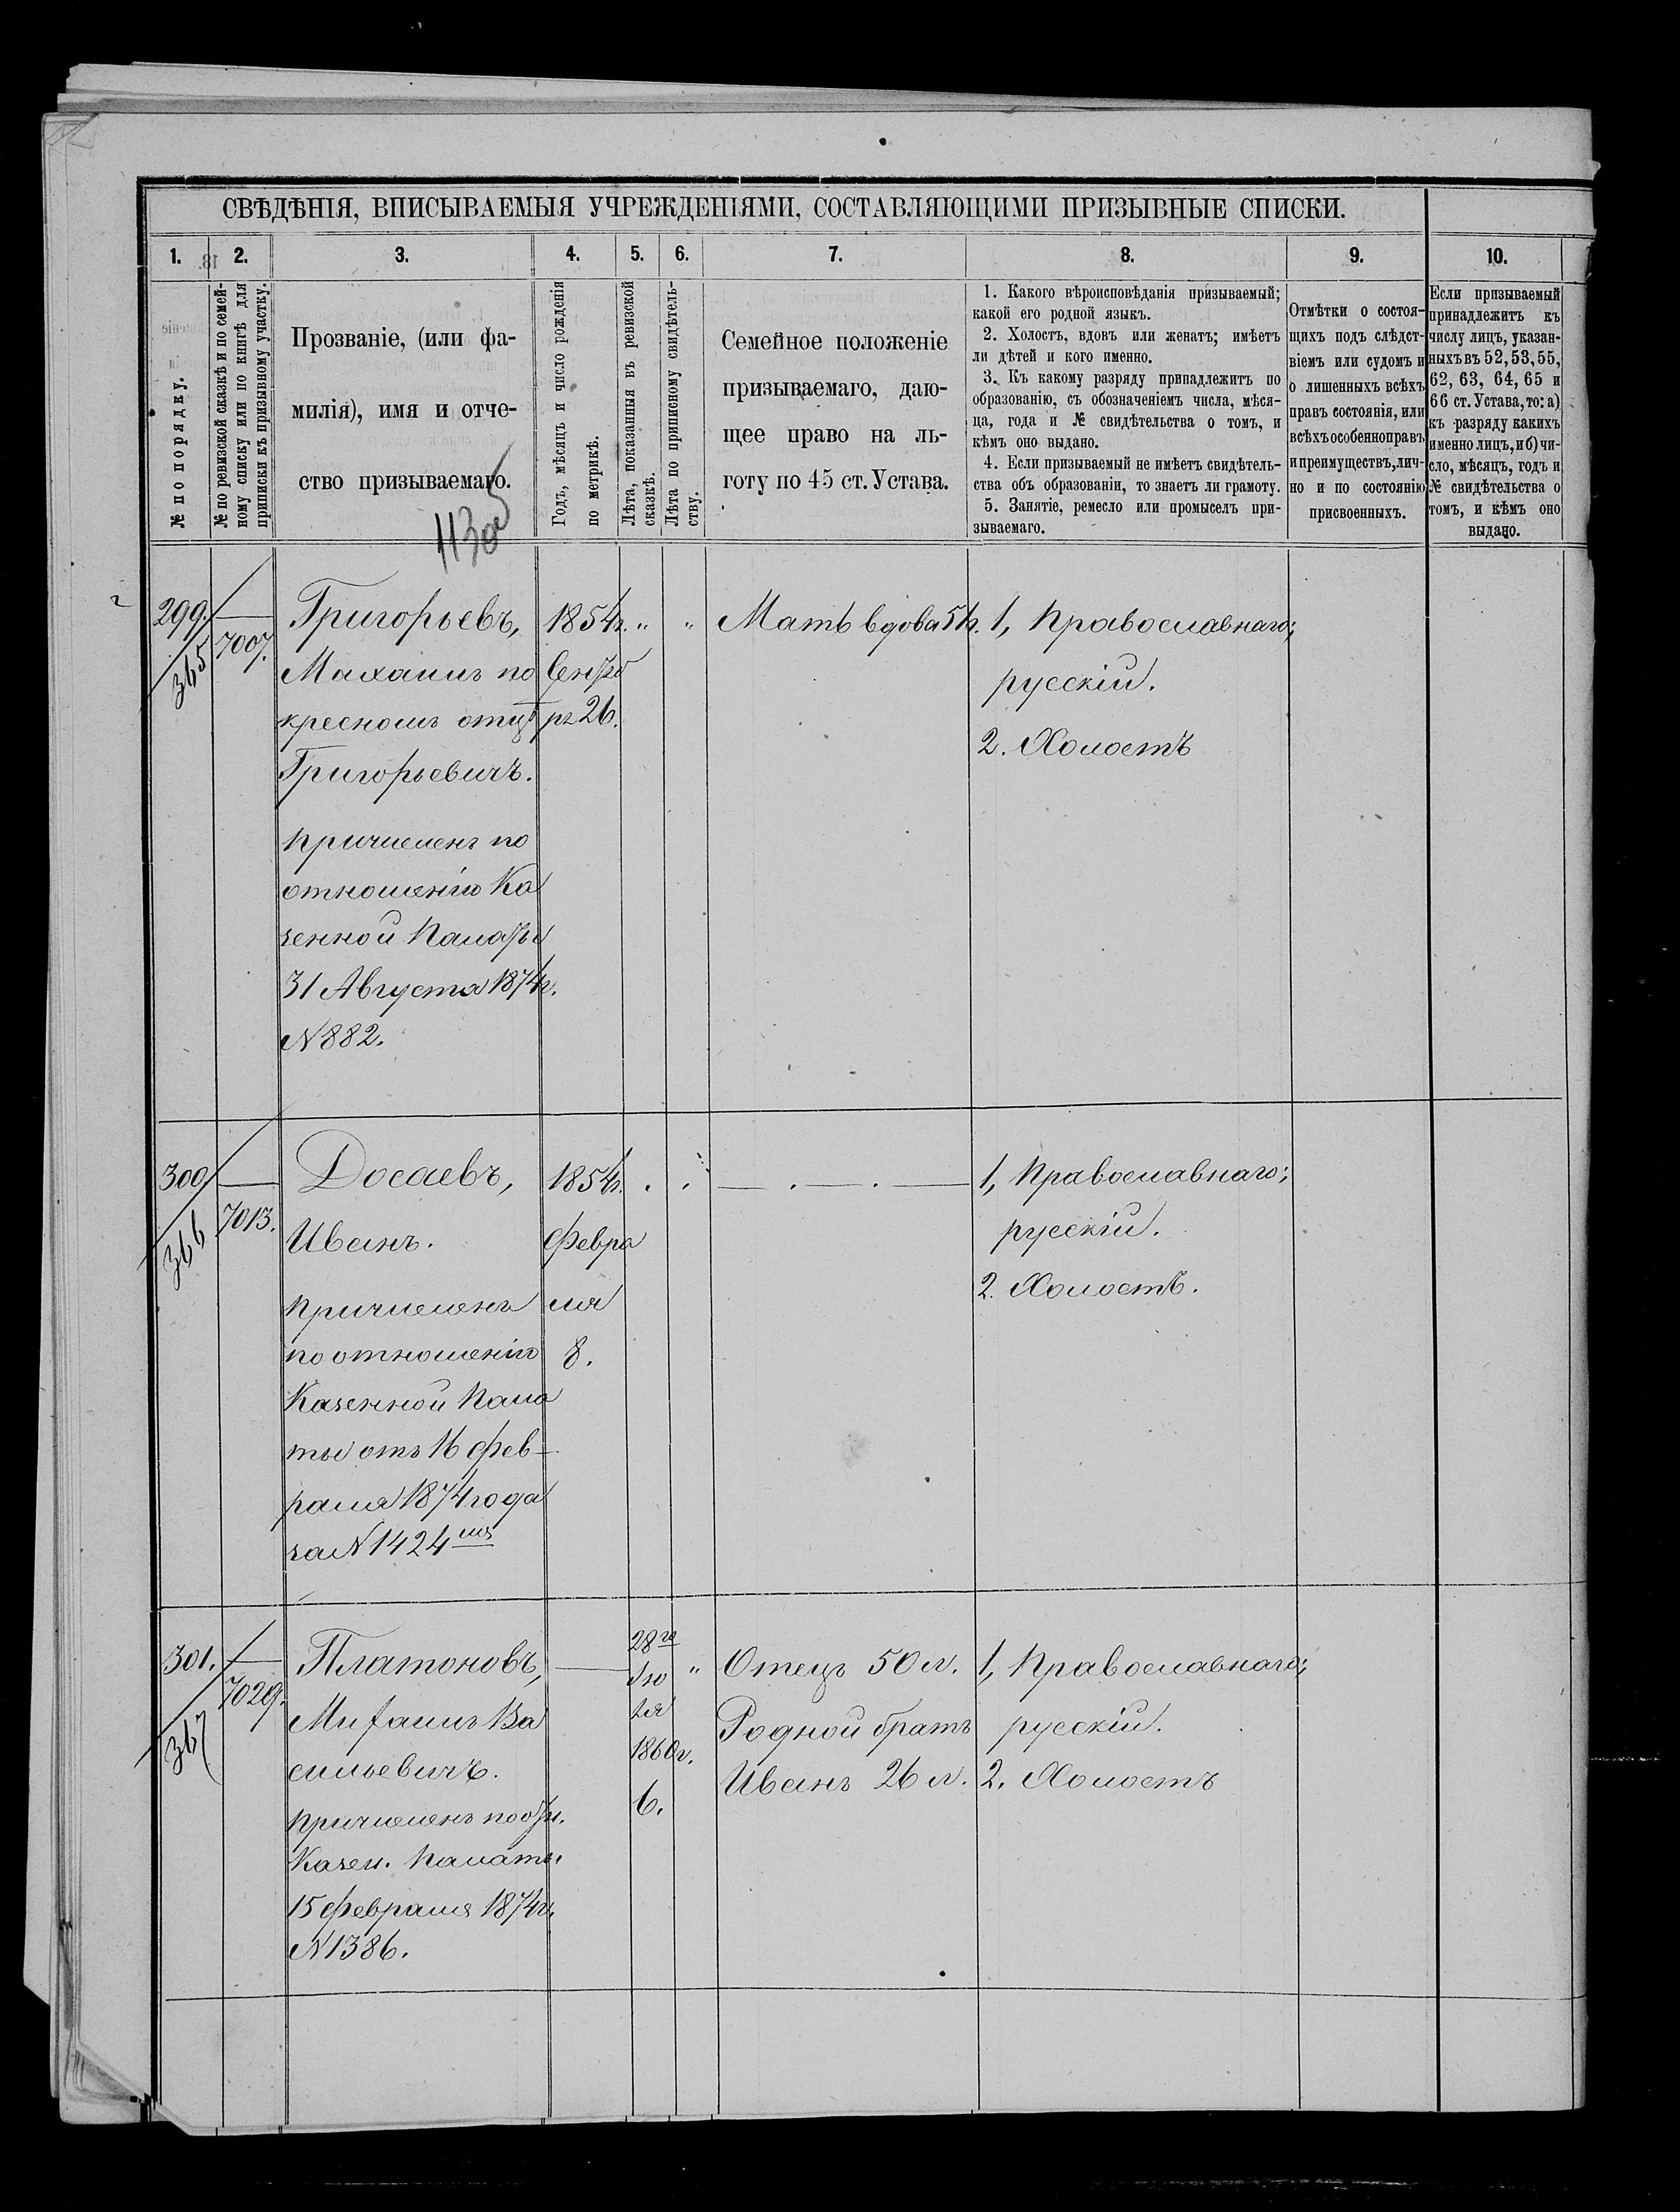 СВѢДѢНІЯ, ВПИСЫВАЕМЫЯ УЧРЕЖДЕНІЯМИ, СОСТАВЛЯЮЩИМИ ПРИЗЫВНЫЕ СПИСКИ.
1.
2.
3.
4.
5.
6.
7.
8.
9.
10.
№ по порядку.
№ по ревизской сказкѣ и по семей-
ному списку или по книгѣ для
приписки къ призывному участку.
Прозваніе, (или фа-
милія), имя и отче-
ство призываемаго.
Годъ, мѣсяцъ и число рожденія
по метрикѣ.
Лѣта, показанныя въ ревизской
сказкѣ.
Лѣта по приписному свидѣтель-
ству.
Семейное положеніе
призываемаго, даю-
щее право на ль-
готу по 45 ст. Устава.
1. Какого вѣроисповѣданія призываемый;
какой его родной языкъ.
2. Холостъ, вдовъ или женатъ; имѣетъ
ли дѣтей и кого именно.
3. Къ какому разряду принадлежитъ по
образованію, съ обозначеніемъ числа, мѣся-
ца, года и № свидѣтельства о томъ, и
кѣмъ оно выдано.
4. Если призываемый не имѣетъ свидѣтель-
ства объ образованіи, то знаетъ ли грамоту.
5. Занятіе, ремесло или промыселъ при-
зываемаго.
Отмѣтки о состоя-
щихъ подъ слѣдст-
віемъ или судомъ и
о лишенныхъ всѣхъ
правъ состоянія, или
всѣхъ особенно правъ
и преимуществъ, лич-
но и по состоянію
присвоенныхъ.
Если призываемый
принадлежитъ къ
числу лицъ, указан-
ныхъ въ 52, 53, 55,
62, 63, 64, 65 и
66 ст. Устава, то: а)
къ разряду какихъ
именно лицъ, и б) чи-
сло, мѣсяцъ, годъ и
№ свидѣтельства о
томъ, и кѣмъ оно
выдано.
299.
365
7007.
Григорьевъ,
Михаилъ по
кресном отцѣ
Григорьевичъ.
причисленъ по
отношенію Ка
зенной Палаты
31 Августа 1874г.
N882.
1854г.
Сентяб
ря 26.
" "
Мать вдова 51г.
1, Православнаго;
русскій.
2. Холостъ
300
366
7013.
Досаевъ,
Иванъ.
причисленъ
по отношенію
Казенной Пала
ты отъ 16 Фев-
раля 1874 года
за N1424
1854г.
Февра
ля
8.
1, Православнаго;
русскій.
2. Холостъ.
301.
367
7029.
Платоновъ,
Михаилъ Ва
сильевичъ.
причисленъ по
Казен. Палаты
15 февраля 1874г.
N1386.
28го
Ию
ля
1860г.
6.
"
Отецъ 50 л.
Родной братъ
Иванъ 26 л.
1, Православнаго;
русскій.
2. Холостъ